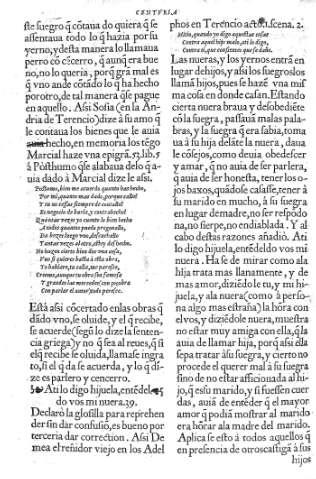 CENTVRIA
ste suegro q̃ cõtaua do quiera q̃ se
assentaua todo lo q̃ hazia por su
yerno, y desta manera lo llamaua
perro co cẽcerro, q̃ aunq̃ era bue
no, no lo queria, porq̃ grã mal es
q̃ vno ande cõtãdo lo q̃ ha hecho
por otro, de tal manera q̃ se pague
en aquello. Assi Sosia (en la An
dria de Terencio) dize à su amo q̃
le contaua los bienes que le auia
hecho, en memoria los tẽgo
Marcial haze vna epigrã. 52. lib. 5
à Pósthumo q̃ se alabaua delo q̃ a-
uia dado à Marcial dize le assi.
Posthumo, bien me acuerdo quanto has hecho,
Por mi, quanto mas dado, porque callo?
Y tu no cessas siempre de contallo?
Quantas vezes yo cuento lo bien hecho
A todos quantos puedo pregonallo,
No ha que cierto bien dos mas assi,
Y tu hablare, tu calla, me persisto,
Con parlar el autor todo perece.
Està assi cõcertado enlas obras q̃
dãdo vno, se oluide, y el q̃ recibe,
se acuerde (segũ lo dize la senten-
cia griega) y no q̃ sea al reues, q̃ si
elq̃ recibe se oluida, llamase ingra
to, si el q̃ da se acuerda, y lo q̃ di-
ze es parlero y cencerro.
Ati lo digo hijuela, entẽdel
do vos mi nuera. 39.
Declarò la glosilla para reprehen
der sin dar confusiõ, es bueno por
terceria dar correction. Assi De
mea el reñidor viejo en los Adel
phos en Terencio actõ 5. scena. 2.
Mitio, quando yo digo aquestas cosas
Contra aquel hijo malo, ati lo digo,
Contra ti, que consientes que se dañe.
Las nueras, y los yernos entrã en
lugar de hijos, y assi los suegros los
llamã hijos, pues se hazẽ vna mis
ma cosa en donde casan. Estando
cierta nuera braua y desobediẽte
cò la suegra, passauã malas pala-
bras, y la suegra q̃ era sabia, toma
ua à su hija delãte la nuera, daua
le cõsejos, como deuia obedescer
y amar, q̃ no auia de ser parlera,
q̃ auia de ser honesta, tener los o-
jos baxos, quãdo se casasse, tener à
su marido en mucho, à su suegra
en lugar de madre, no ser respõdo
na, no sierpe, no endiablada. Y al
cabo destas razones añadiò. Ati
lo digo hijuela, entẽdeldo vos mi
nuera. Ha se de mirar como ala
hija trata mas llanamente, y de
mas amor, diziẽdo le tu, y mi hi-
juela, y ala nuera (como à perso-
na algo mas estraña) la hõra con
el vos, y diziẽdole nuera, muestra
no estar muy amiga con ella, q̃ la
auia de llamar hija, porq̃ assi ella
sepa tratar à su suegra, y cierto no
procede el querer mal à su suegra
sino de no estar afficionada al hi-
jo, q̃ es su marido, y si fuessen cuer
das, auiã de entẽder q̃ el mayor
amor q̃ podiã mostrar al marido
era hõrar ala madre del marido.
Aplica se esto à todos aquellos q̃
en presencia de otros castigã à sus
hijos